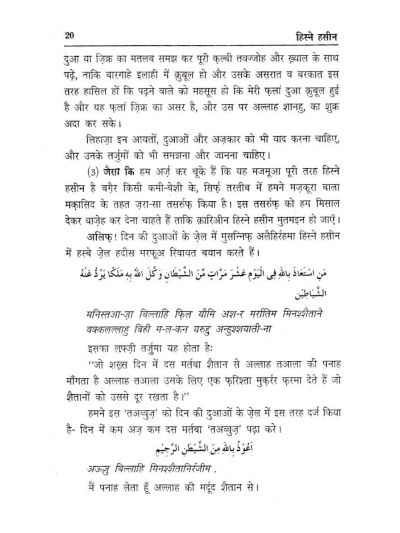 20
हिस्ने हसीन
दुआ या ज़िक्र का मतलब समझ कर पूरी क़ल्बी तवज्जोह और ख़्याल के साथ
पढ़े, ताकि बारगाहे इलाही में क़ुबूल हो और उसके असरात व बरकात इस
तरह हासिल हों कि पढ़ने वाले को महसूस हो कि मेरी फ़्लां दुआ क़ुबूल हुई
है और यह फ़्लां ज़िक्र का असर है, और उस पर अल्लाह शानहु, का शुक्र
अदा कर सके।
लिहाज़ा इन आयतों, दुआओं और अज़कार को भी याद करना चाहिए,
और उनके तर्जुमों को भी समझना और जानना चाहिए।
(3) जैसा कि हम अर्ज़ कर चूके हैं कि यह मजमूआ पूरी तरह हिस्ने
हसीन है बग़ैर किसी कमी-बेशी के, सिर्फ़ तरतीब में हमने मज़कूरा वाला
मक़ासिद के तहत ज़रा-सा तसर्रुफ़ किया है। इस तसर्रुफ़ को हम मिसाल
देकर वाज़ेह कर देना चाहते हैं ताकि क़ारिईन हिस्ने हसीन मुतमइन हो जाएँ।
अलिफ़! दिन की दुआओं के ज़ेल में मुसन्निफ़ अलैहिर्हमा हिस्ने हसीन
में हस्बे ज़ेल हदीस मरफूअ रिवायत बयान करते हैं।
مَنِ اسْتَعَاذَ بِاللهِ فِى الْيَوْمِ عَشَرَ مَرَّاتٍ مِّنَ الشَّيْطَانِ وَكَّلَ اللهُ بِهٖ مَلَكًا يَرُدُّ عَنْهُ
الشَّيَاطِيْنَ
मनिस्तआ-ज़ा बिल्लाहि फ़िल यौमि अश-र मर्रातिम मिनश्शैताने
वक्कलल्लाहु बिही म-ल-कन यरुद्दु अन्हुश्शयाती-ना
इसका लफ़्ज़ी तर्जुमा यह होता हैः
"जो शख़्स दिन में दस मर्तबा शैतान से अल्लाह तआला की पनाह
माँगता है अल्लाह तआला उसके लिए एक फ़रिश्ता मुक़र्रर फ़रमा देते हैं जो
शैतानों को उससे दूर रखता है।"
हमने इस 'तअव्वुज़' को दिन की दुआओं के ज़ेल में इस तरह दर्ज किया
है- दिन में कम अज़ कम दस मर्तबा 'तअव्वुज़' पढ़ा करे।
اَعُوْذُ بِاللهِ مِنَ الشَّيْطٰنِ الرَّجِيْمِ
अऊज़ु बिल्लाहि मिनश्शैतानिर्रजीम.
मैं पनाह लेता हूँ अल्लाह की मर्दूद शैतान से।